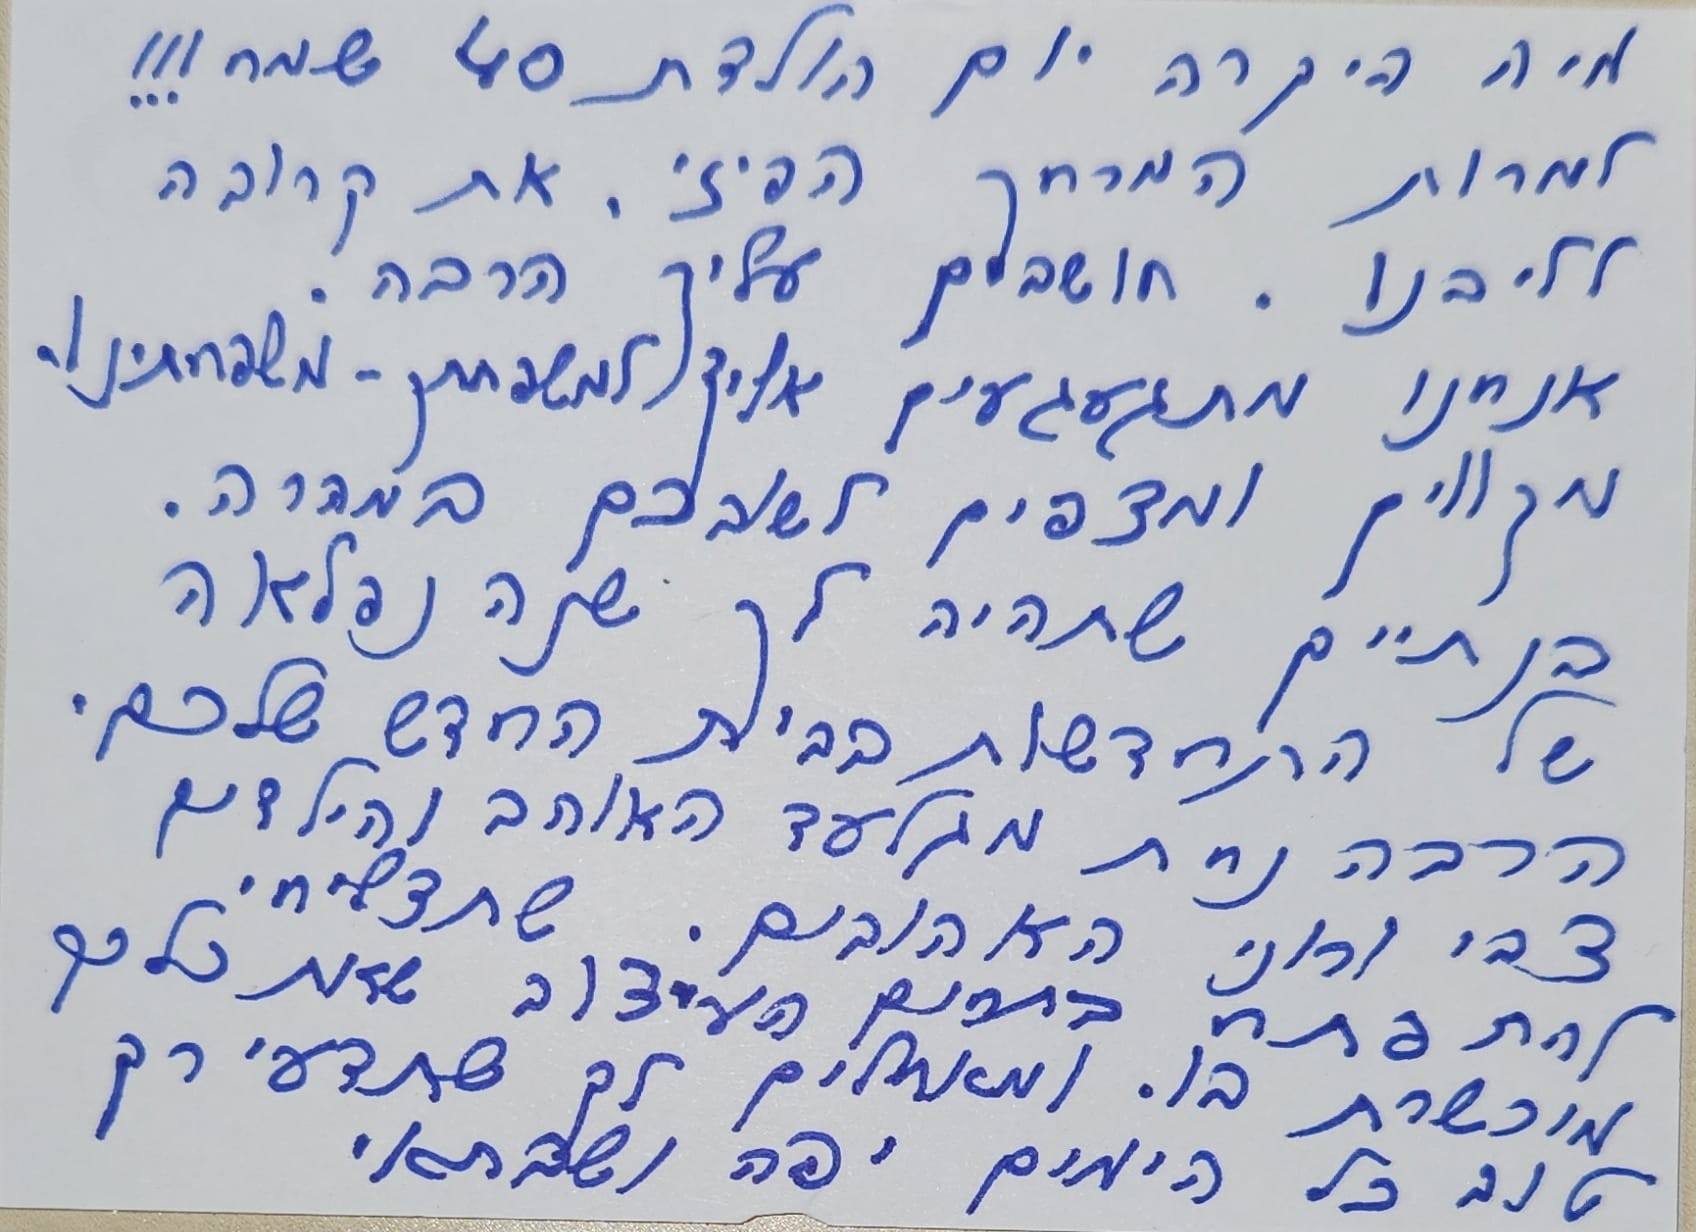 מיה היקרה יום הולדת 40 שמח!!!
למרות המרחק הפיזי, את קרובה
לליבנו. חושבים עליך הרבה.
אנחנו מתגעגעים אליך, למשפחתך - משפחתינו.
מקווים ומצפים לשובכם במהרה.
בנתיים שתהיה לך שנה נפלאה
של התחדשות בבית החדש שלכם.
הרבה נחת מגלעד האוהב והילדים
צבי ורוני האהובים. שתצליחי
להתפתח בתחום העיצוב שאת כל כך
מוכשרת בו. ומאחלים לך שתדעי רק
טוב כל הימים יפה ושבתאי